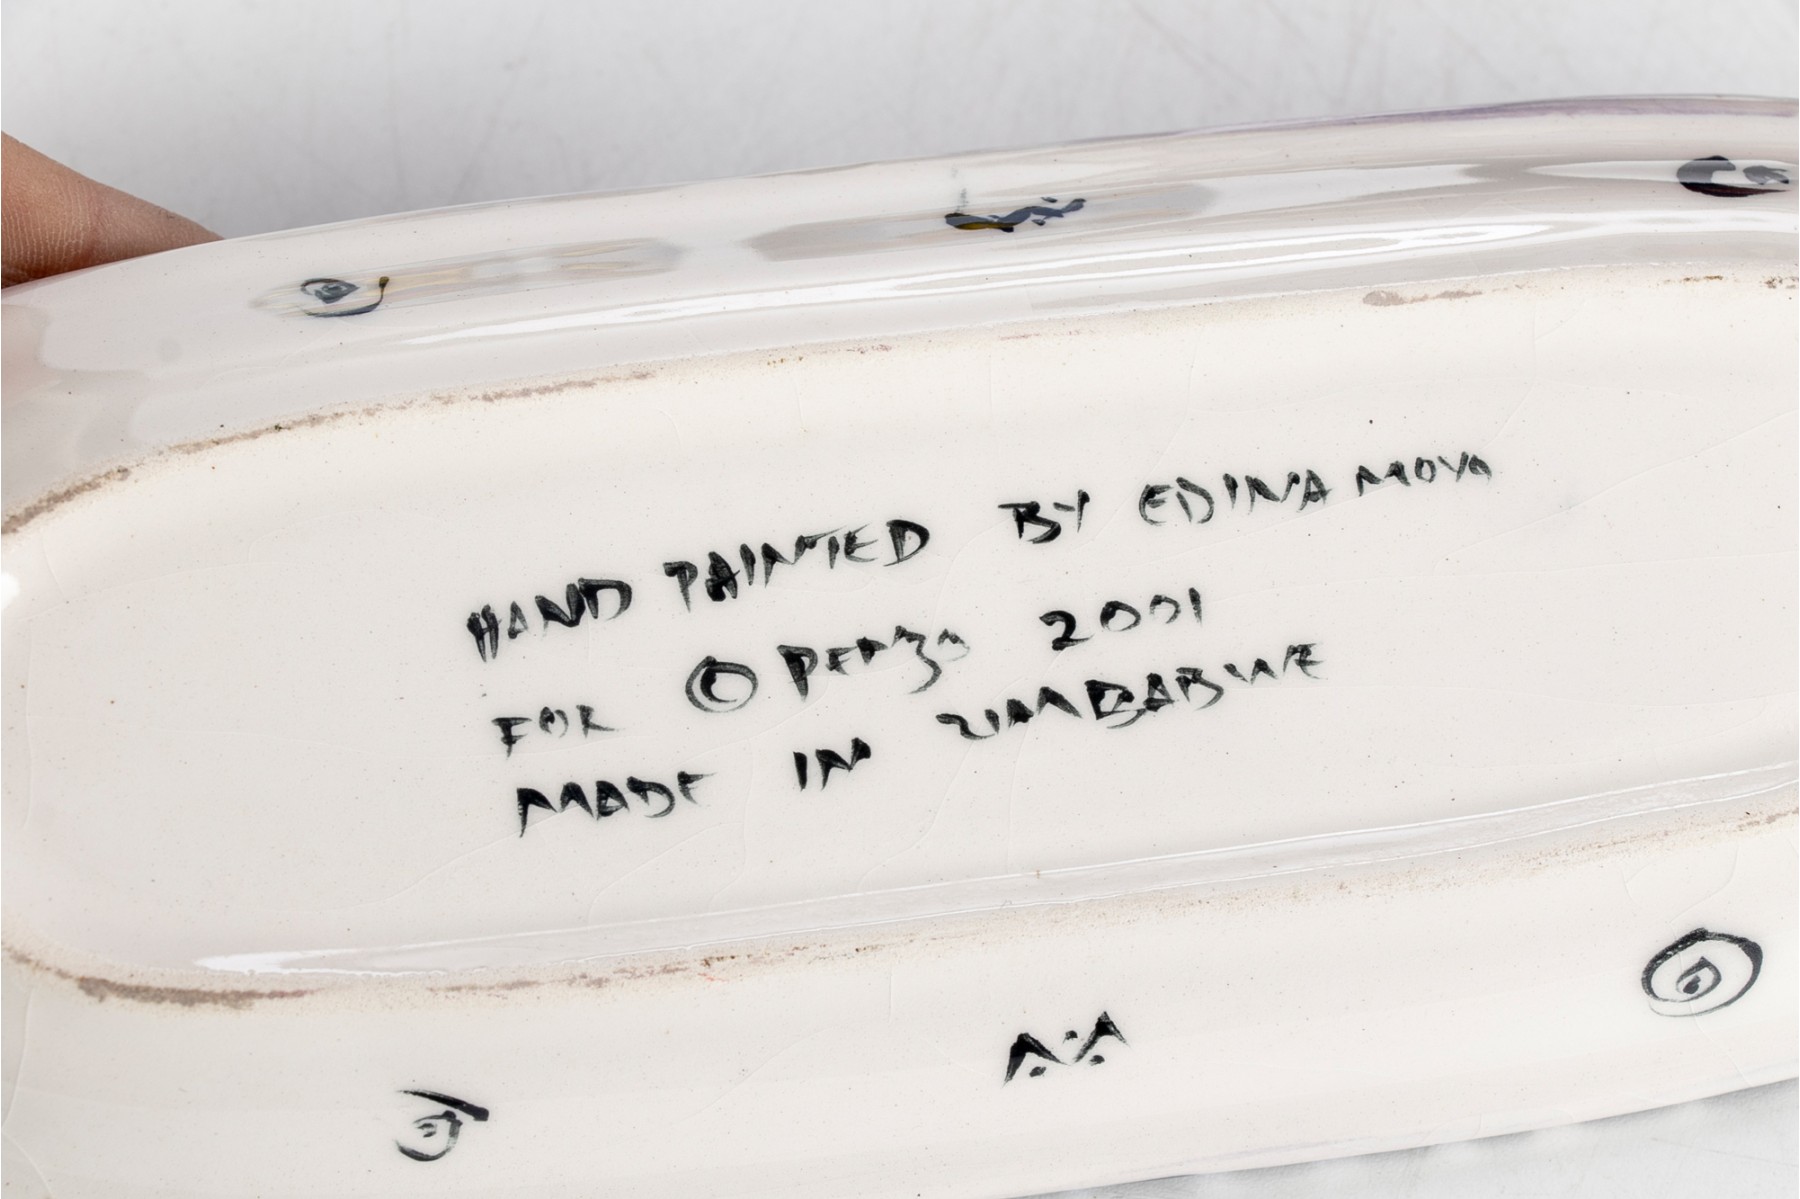 HAND PAINTED BY EDINA MOYO
FOR © PENZO 2001
MADE IN ZIMBABWE